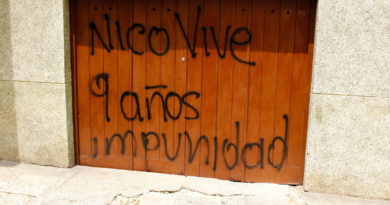 Nico Vive
9 años
impunidad